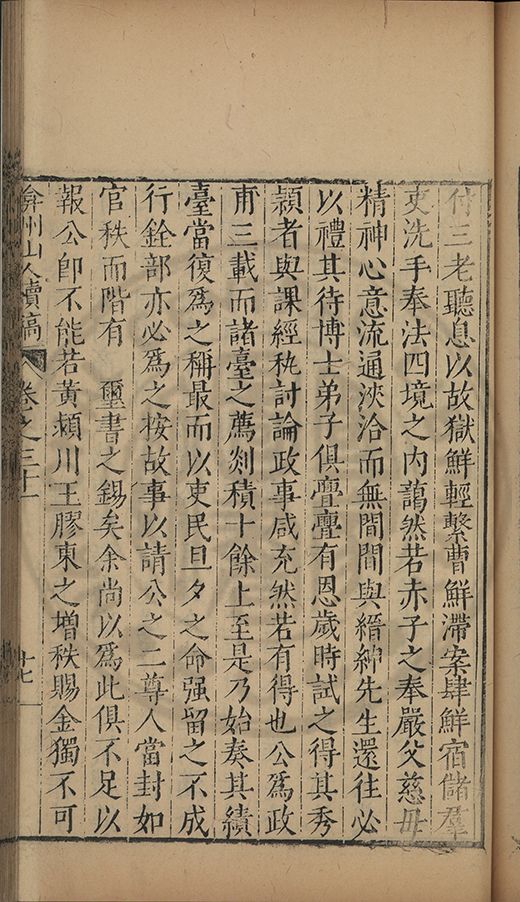 付三老聽息以故獄鮮輕繫曹鮮滯案肆鮮宿儲羣
吏洗手奉法四境之內藹然若赤子之奉嚴父慈母
精神心意流通浹洽而無間間與縉紳先生還往必
以禮其待博士弟子俱亹亹有恩歲時試之得其秀
穎者與課經秇討論政事咸充然若有得也公爲政
甫三載而諸臺之薦剡積十餘上至是乃始奏其績
臺當復爲之稱最而以吏民旦夕之命强留之不成
行銓部亦必爲之按故事以請公之二尊人當封如
官秩而階有 璽書之錫矣余尚以爲此俱不足以
報公卽不能若黃潁川王膠東之增秩賜金獨不可
弇州山人續稿 卷之三十一 十七